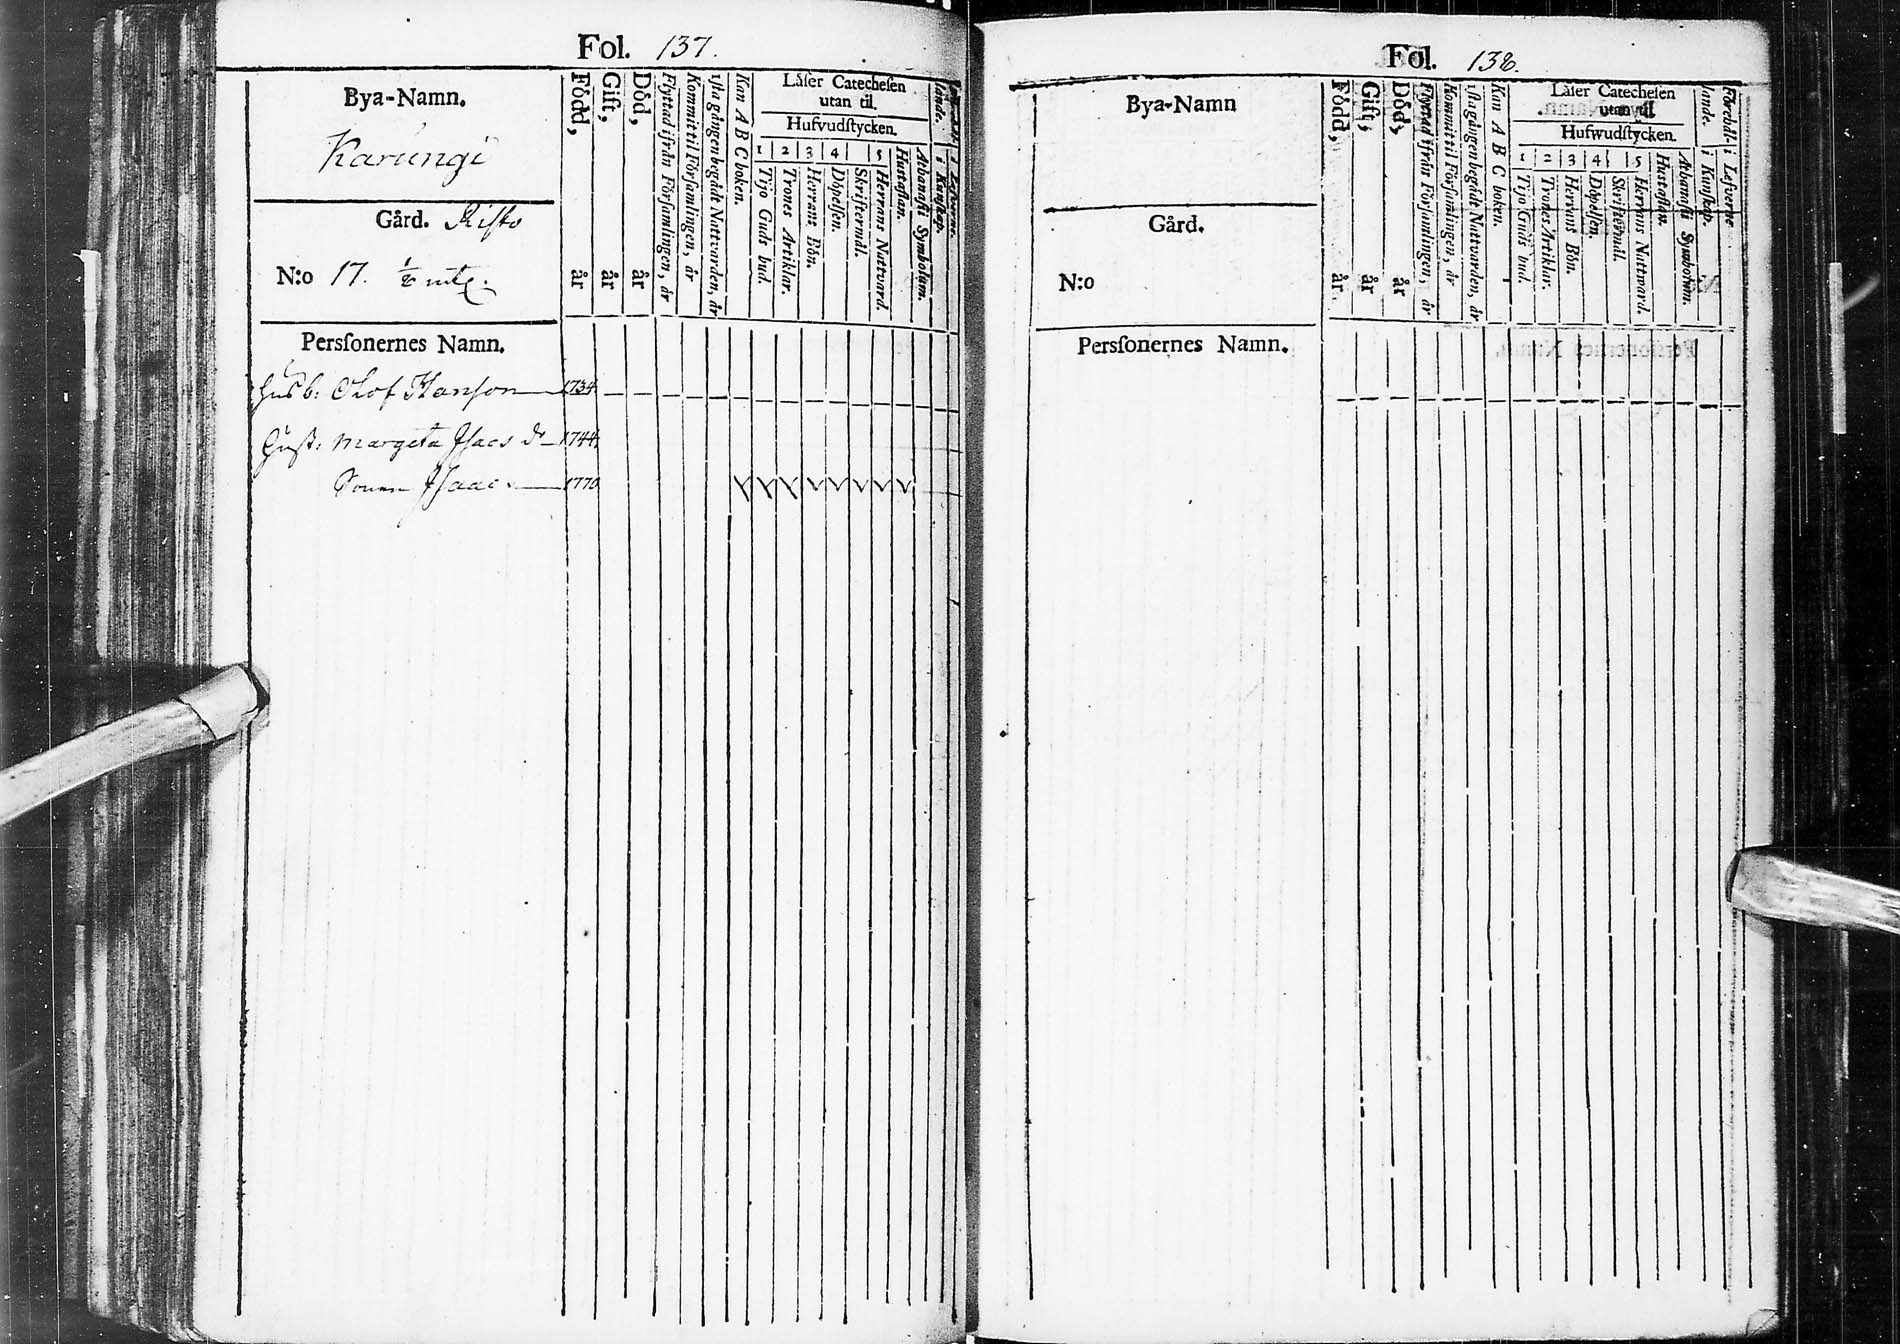 Fol. 137.
Bya-Namn.
Karungi
Gård. Risto
N:o 17. ½ mtl.
Född, år
Gift, år
Död, år
Flyttad ifrån Församlingen, år
Kommit til Församlingen, år
1sta gången begådt Nattvarden, år
Kan A B C boken.
Låser Catechesen
utan til.
Hufvudstycken.
1 2 3 4 5
Tijo Guds bud.
Trones Artiklar.
Herrans Bön.
Döpelsen.
Skriftermål.
Herrans Nattvard.
Hustaflan.
Athanasii Symbolum.
i Kunskap.
i Lefverne.
Perssonernes Namn.
Husb: Olof Hansson 1734
Hust: Margeta Isacs dr 1744.
Sonen Isaac 1770
Fol. 138.
Bya-Namn
Gård.
N:o
Född, år
Gift, år
Död, år
Flyttad ifrån Församlingen, år
Kommit til Församlingen, år
1sta gången begådt Nattvarden, år
Kan A B C boken.
Låser Catechesen
utan til.
Hufwudstycken.
1 2 3 4 5
Tijo Guds bud.
Trones Artiklar.
Herrans Bön.
Döpelsen.
Skriftermål.
Herrans Nattvard.
Hustaflan.
Athanasii Symbolum.
Förehållande.
i Kunskap.
i Lefverne
Perssonernes Namn.